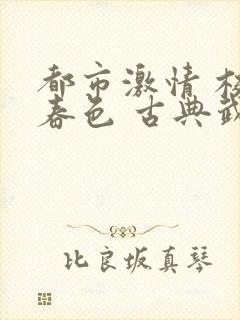 都市激情 校
春色 古典武
比良坂真琴